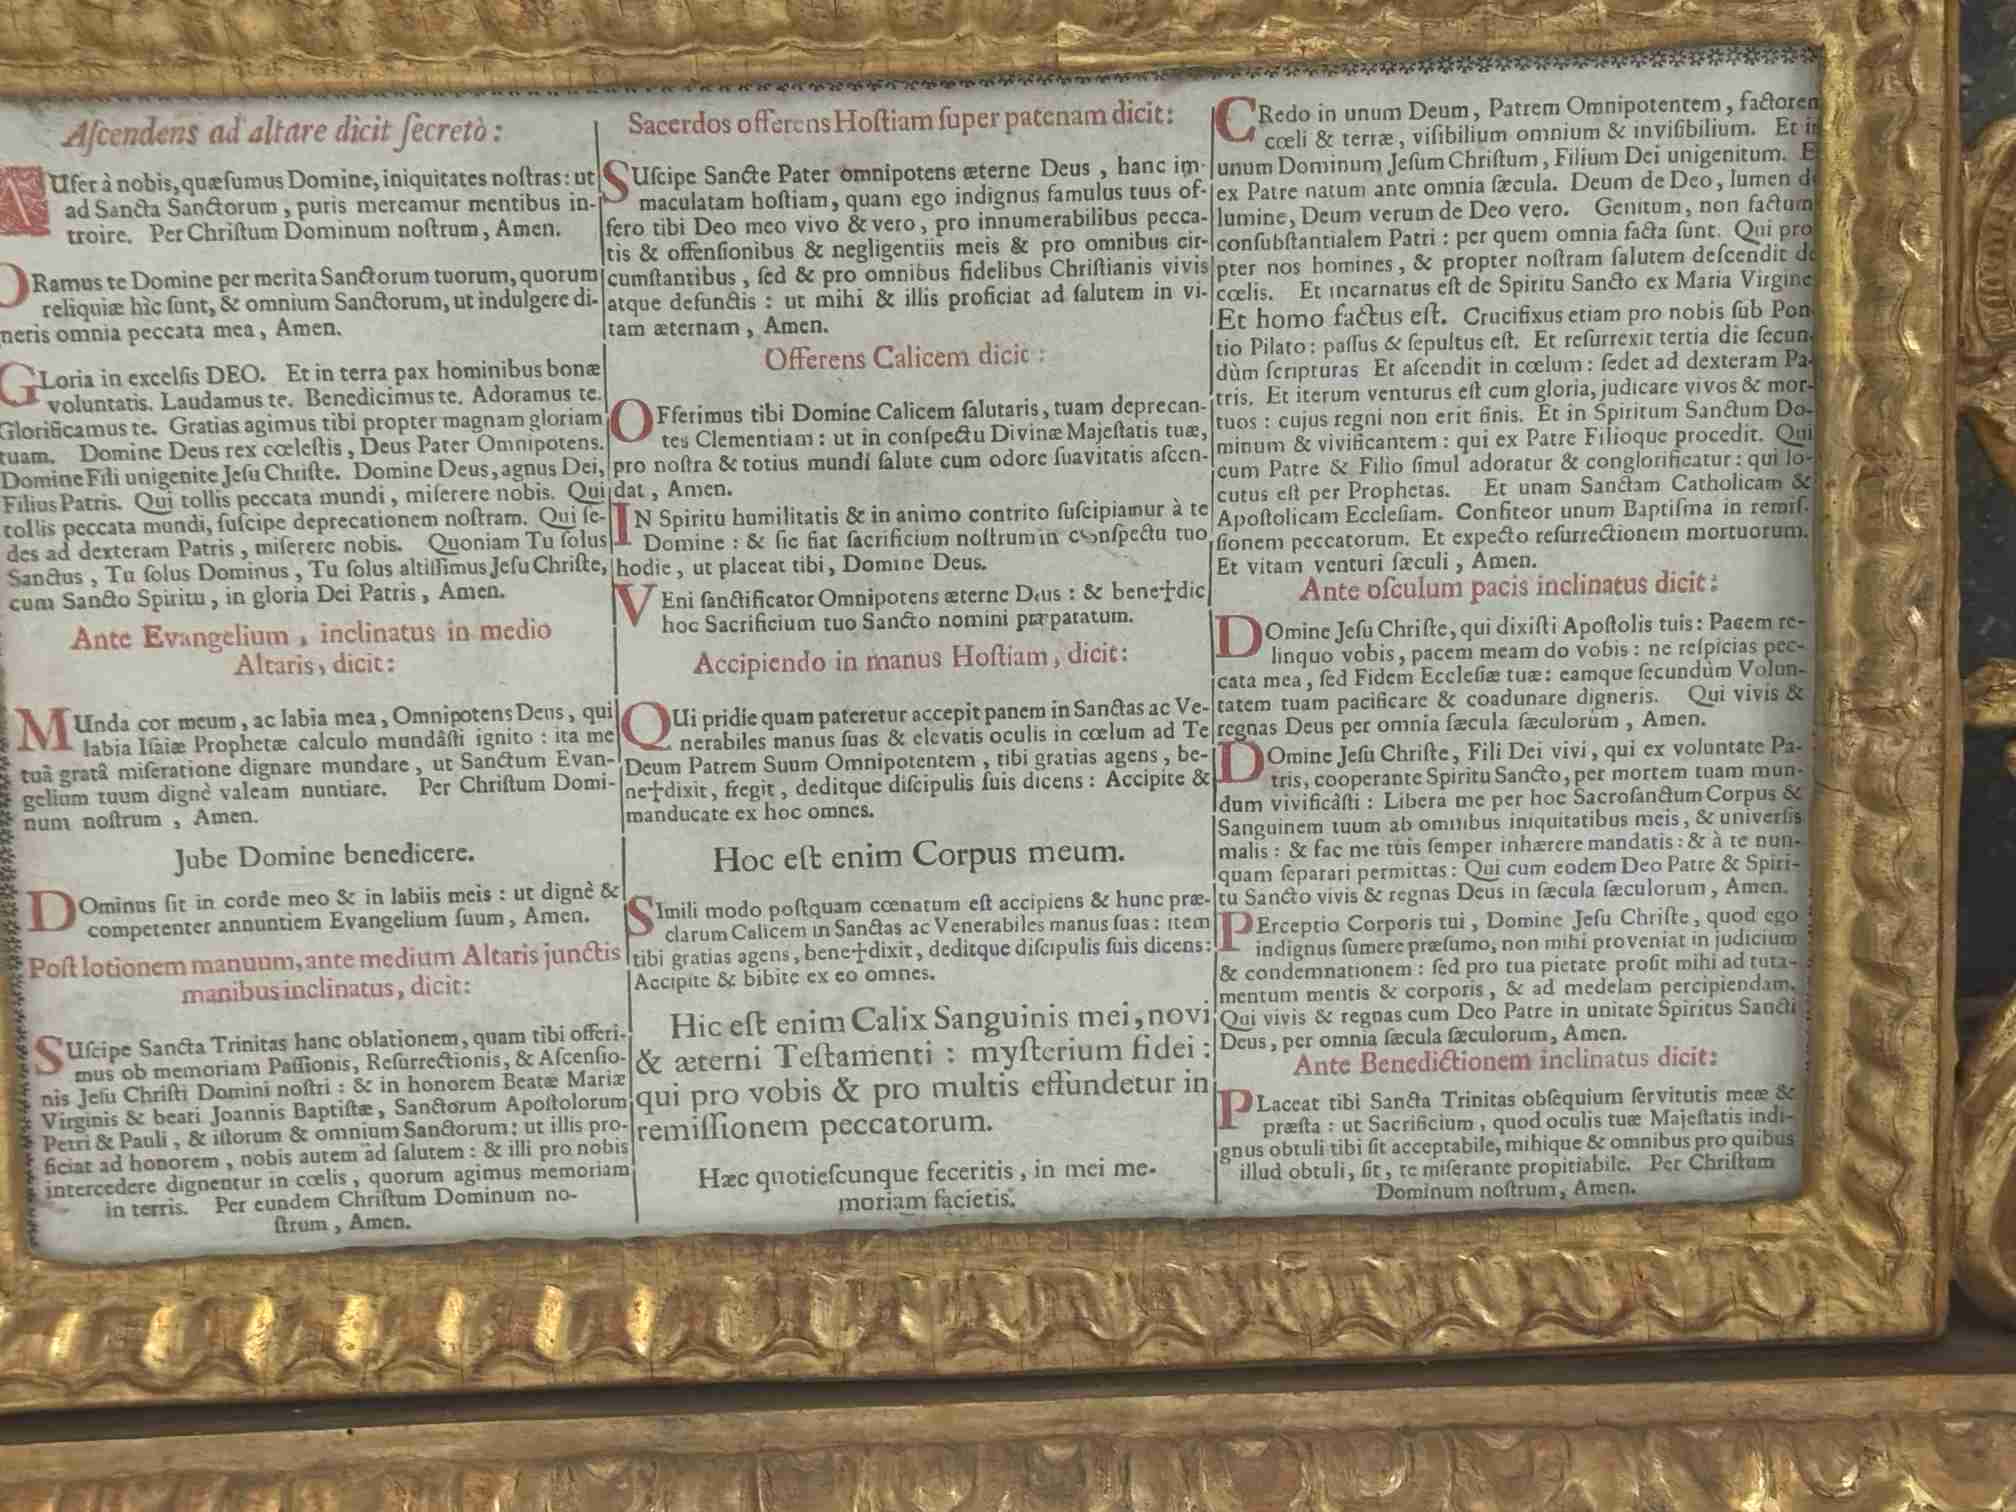 Aſcendens ad altare dicit ſecretò:
AUfer à nobis, quæſumus Domine, iniquitates noſtras: ut
ad Sancta Sanctorum, puris mereamur mentibus in-
troire. Per Chriſtum Dominum noſtrum, Amen.
ORamus te Domine per merita Sanctorum tuorum, quorum
reliquiæ hìc ſunt, & omnium Sanctorum, ut indulgere di-
neris omnia peccata mea, Amen.
GLoria in excelſis DEO. Et in terra pax hominibus bonæ
voluntatis. Laudamus te. Benedicimus te. Adoramus te.
Glorificamus te. Gratias agimus tibi propter magnam gloriam
tuam. Domine Deus rex cœleſtis, Deus Pater Omnipotens.
Domine Fili unigenite Jeſu Chriſte. Domine Deus, agnus Dei,
Filius Patris. Qui tollis peccata mundi, miſerere nobis. Qui
tollis peccata mundi, ſuſcipe deprecationem noſtram. Qui ſe-
des ad dexteram Patris, miſerere nobis. Quoniam Tu ſolus
Sanctus, Tu ſolus Dominus, Tu ſolus altiſſimus Jeſu Chriſte,
cum Sancto Spiritu, in gloria Dei Patris, Amen.
Ante Evangelium, inclinatus in medio
Altaris, dicit:
MUnda cor meum, ac labia mea, Omnipotens Deus, qui
labia Iſaiæ Prophetæ calculo mundâſti ignito: ita me
tuâ gratâ miſeratione dignare mundare, ut Sanctum Evan-
gelium tuum dignè valeam nuntiare. Per Chriſtum Domi-
num noſtrum, Amen.
Jube Domine benedicere.
DOminus ſit in corde meo & in labiis meis: ut dignè &
competenter annuntiem Evangelium ſuum, Amen.
Poſt lotionem manuum, ante medium Altaris junctis
manibus inclinatus, dicit:
SUſcipe Sancta Trinitas hanc oblationem, quam tibi offeri-
mus ob memoriam Paſſionis, Reſurrectionis, & Aſcenſio-
nis Jeſu Chriſti Domini noſtri: & in honorem Beatæ Mariæ
Virginis & beati Joannis Baptiſtæ, Sanctorum Apoſtolorum
Petri & Pauli, & iſtorum & omnium Sanctorum: ut illis pro-
ficiat ad honorem, nobis autem ad ſalutem: & illi pro nobis
intercedere dignentur in cœlis, quorum agimus memoriam
in terris. Per eundem Chriſtum Dominum no-
ſtrum, Amen.
Sacerdos offerens Hoſtiam ſuper patenam dicit:
SUſcipe Sancte Pater omnipotens æterne Deus, hanc im-
maculatam hoſtiam, quam ego indignus famulus tuus of-
fero tibi Deo meo vivo & vero, pro innumerabilibus pecca-
tis & offenſionibus & negligentiis meis & pro omnibus cir-
cumſtantibus, ſed & pro omnibus fidelibus Chriſtianis vivis
atque defunctis: ut mihi & illis proficiat ad ſalutem in vi-
tam æternam, Amen.
Offerens Calicem dicit:
OFferimus tibi Domine Calicem ſalutaris, tuam deprecan-
tes Clementiam: ut in conſpectu Divinæ Majeſtatis tuæ,
pro noſtra & totius mundi ſalute cum odore ſuavitatis aſcen-
dat, Amen.
IN Spiritu humilitatis & in animo contrito ſuſcipiamur à te
Domine: & ſic fiat ſacrificium noſtrum in conſpectu tuo
hodie, ut placeat tibi, Domine Deus.
VEni ſanctificator Omnipotens æterne Deus: & bene†dic
hoc Sacrificium tuo Sancto nomini præparatum.
Accipiendo in manus Hoſtiam, dicit:
QUi pridie quam pateretur accepit panem in Sanctas ac Ve-
nerabiles manus ſuas & elevatis oculis in cœlum ad Te
Deum Patrem Suum Omnipotentem, tibi gratias agens, be-
ne†dixit, fregit, deditque diſcipulis ſuis dicens: Accipite &
manducate ex hoc omnes.
Hoc eſt enim Corpus meum.
SImili modo poſtquam cœnatum eſt accipiens & hunc præ-
clarum Calicem in Sanctas ac Venerabiles manus ſuas: item
tibi gratias agens, bene†dixit, deditque diſcipulis ſuis dicens:
Accipite & bibite ex eo omnes.
Hic eſt enim Calix Sanguinis mei, novi
& æterni Teſtamenti: myſterium fidei:
qui pro vobis & pro multis effundetur in
remiſſionem peccatorum.
Hæc quotieſcunque feceritis, in mei me-
moriam facietis.
CRedo in unum Deum, Patrem Omnipotentem, factoren
cœli & terræ, viſibilium omnium & inviſibilium. Et in
unum Dominum Jeſum Chriſtum, Filium Dei unigenitum. E
ex Patre natum ante omnia ſæcula. Deum de Deo, lumen de
lumine, Deum verum de Deo vero. Genitum, non factum
conſubſtantialem Patri: per quem omnia facta ſunt. Qui pro
pter nos homines, & propter noſtram ſalutem deſcendit de
cœlis. Et incarnatus eſt de Spiritu Sancto ex Maria Virgine
Et homo factus eſt. Crucifixus etiam pro nobis ſub Pon
tio Pilato: paſſus & ſepultus eſt. Et reſurrexit tertia die ſecun-
dùm ſcripturas Et aſcendit in cœlum: ſedet ad dexteram Pa-
tris. Et iterum venturus eſt cum gloria, judicare vivos & mor-
tuos: cujus regni non erit finis. Et in Spiritum Sanctum Do-
minum & vivificantem: qui ex Patre Filioque procedit. Qui
cum Patre & Filio ſimul adoratur & conglorificatur: qui lo-
cutus eſt per Prophetas. Et unam Sanctam Catholicam &
Apoſtolicam Eccleſiam. Confiteor unum Baptiſma in remiſ-
ſionem peccatorum. Et expecto reſurrectionem mortuorum.
Et vitam venturi ſæculi, Amen.
Ante oſculum pacis inclinatus dicit:
DOmine Jeſu Chriſte, qui dixiſti Apoſtolis tuis: Pacem re-
linquo vobis, pacem meam do vobis: ne reſpicias pec-
cata mea, ſed Fidem Eccleſiæ tuæ: eamque ſecundùm Volun-
tatem tuam pacificare & coadunare digneris. Qui vivis &
regnas Deus per omnia ſæcula ſæculorum, Amen.
DOmine Jeſu Chriſte, Fili Dei vivi, qui ex voluntate Pa-
tris, cooperante Spiritu Sancto, per mortem tuam mun-
dum vivificâſti: Libera me per hoc Sacroſanctum Corpus &
Sanguinem tuum ab omnibus iniquitatibus meis, & univerſis
malis: & fac me tuis ſemper inhærere mandatis: & à te nun-
quam ſeparari permittas: Qui cum eodem Deo Patre & Spiri-
tu Sancto vivis & regnas Deus in ſæcula ſæculorum, Amen.
PErceptio Corporis tui, Domine Jeſu Chriſte, quod ego
indignus ſumere præſumo, non mihi proveniat in judicium
& condemnationem: ſed pro tua pietate proſit mihi ad tuta-
mentum mentis & corporis, & ad medelam percipiendam.
Qui vivis & regnas cum Deo Patre in unitate Spiritus Sancti
Deus, per omnia ſæcula ſæculorum, Amen.
Ante Benedictionem inclinatus dicit:
PLaceat tibi Sancta Trinitas obſequium ſervitutis meæ &
præſta: ut Sacrificium, quod oculis tuæ Majeſtatis indi-
gnus obtuli tibi ſit acceptabile, mihique & omnibus pro quibus
illud obtuli, ſit, te miſerante propitiabile. Per Chriſtum
Dominum noſtrum, Amen.